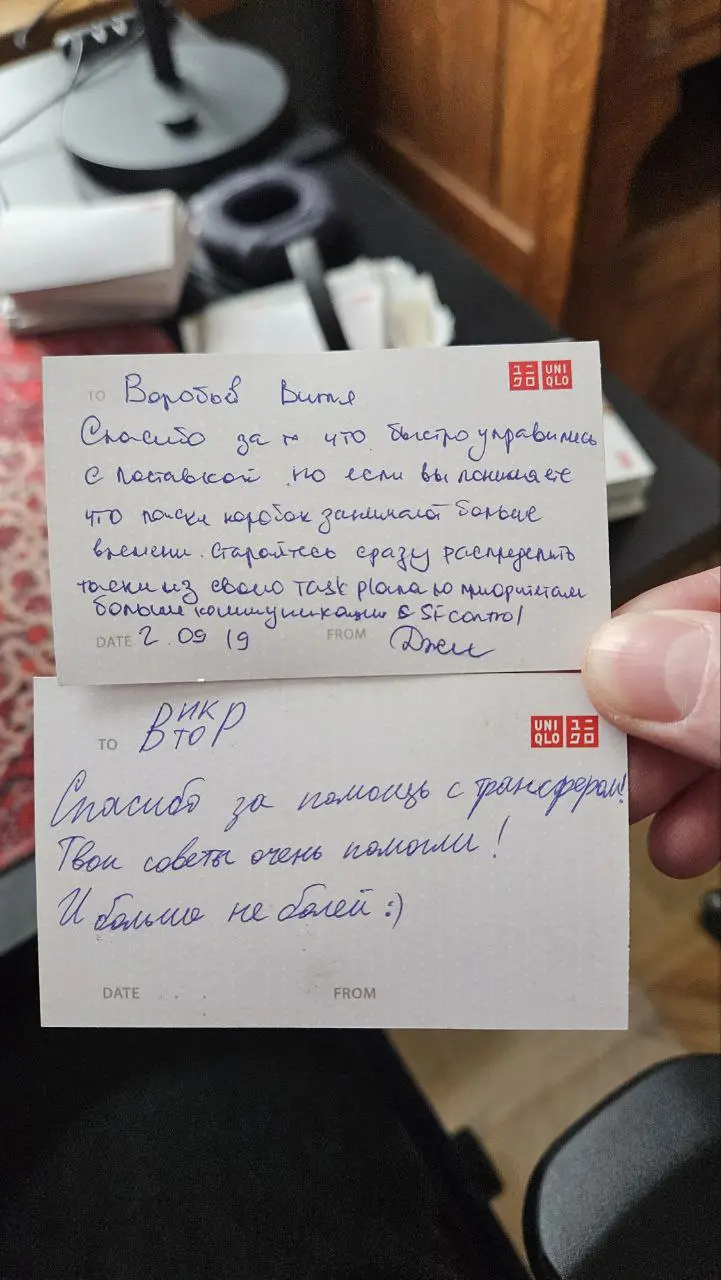 TO Воробьёв Витя
ユニクロ UNIQLO
Спасибо за то что быстро управились
с поставкой но если вы понимаете
что поиски коробок занимают больше
времени. Старайтесь сразу распределить
таски из своего Task plana по приоритетам
больше коммуникации с SFcontrol
DATE 2.09 19 FROM Джи
TO ВИКТОР
UNIQLO ユニクロ
Спасибо за помощь с трансфером!
Твои советы очень помогли!
И больше не болей :)
DATE FROM